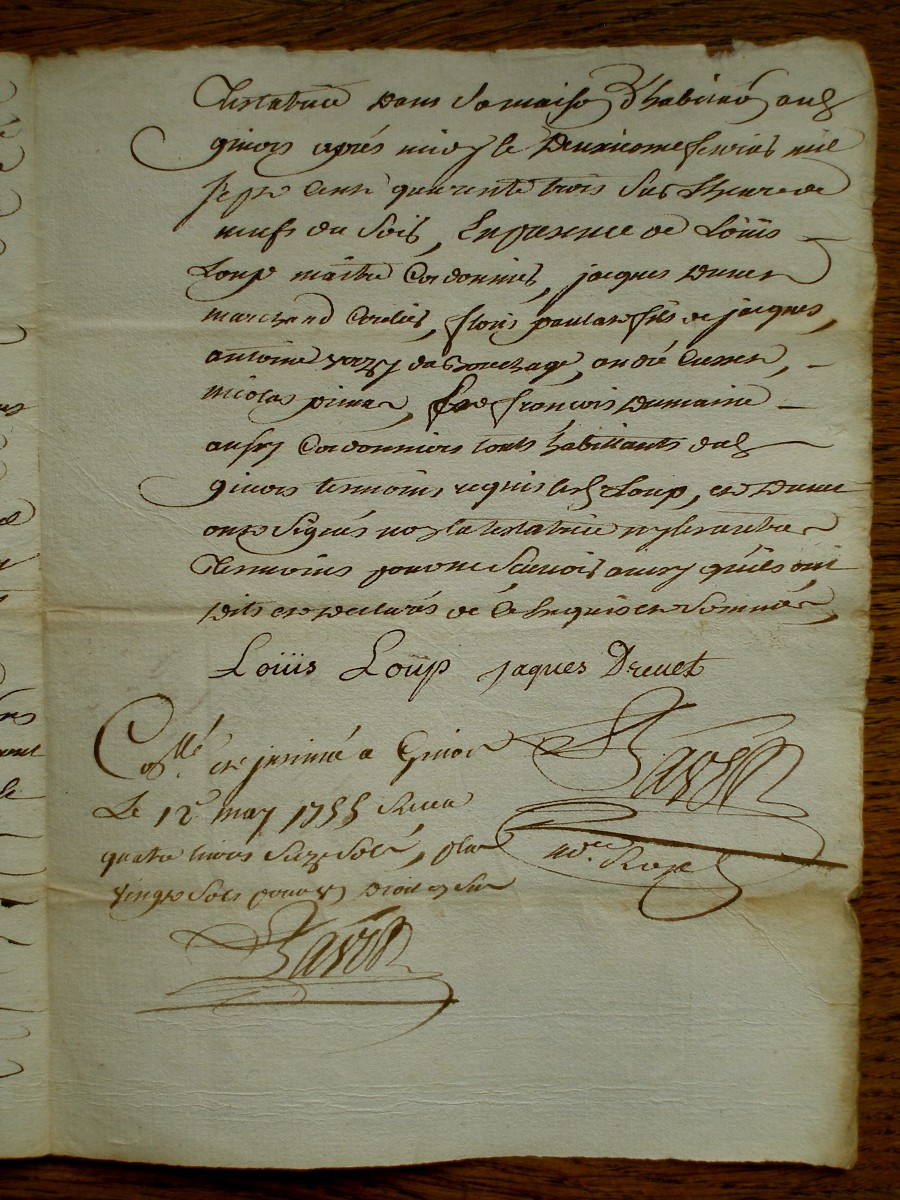 Testatrice dans sa maison d'habitaõn aud
givors après midy le deuxieme fevrier mil
sept cents quarente trois sur l'heure de
neufs du soir, En presence de Loüis
Loup maitre Cordonnier, jacques Drevet
marchand Cordier, fleris paulat fils de jacques,
antoine du Bouchage, andré
nicolas, françois Dumaine
aussy Cordonniers touts habittants dud
givors temoins requis lesd Loup, et Drevet
onts signés non la testatrice ny les autres
Tesmoins pour ne sçavoir ainsy qu'ils ont
dits et declarés de ce Enquis et sommés,
Loüis Loup jaques Drevet
Collé et insinué a Givors
Le 12e may 1755 Receu
quatre livres seize sols, plus
vingt sols pour droit
nore Royal